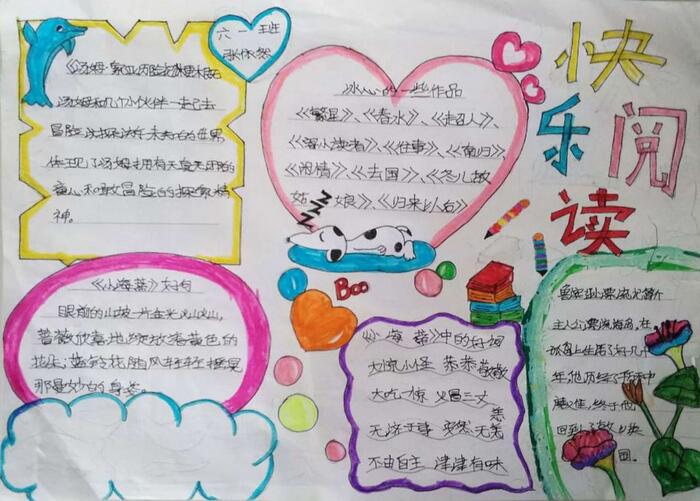 快
乐 阅
读
六一班
张依然
《汤姆·索亚历险记》
汤姆和几个小伙伴一起去
冒险
体现了汤姆拥有
童心和敢冒险的探索精
神。
冰心的一些作品
《繁星》、《春水》、《超人》、
《寄小读者》、《往事》、《南归》、
《闲情》、《去国》、《冬儿姑
娘》、《归来以后》
Boo
zzz
《小海蒂》好句
眼前的山坡一片金光灿灿,
蔷薇欣喜地绽放着黄色的
花朵,蓝铃花随风轻轻摇晃
那曼妙的身姿。
《小海蒂》中的好词
大惊小怪 恭恭敬敬
大吃一惊 火冒三丈
无济于事 安然无恙
不由自主 津津有味
鲁宾逊漂流记简介
主人公漂流海岛,在
孤岛上生活了好几十
年,他历经了
终于他
回到了故乡英
国。